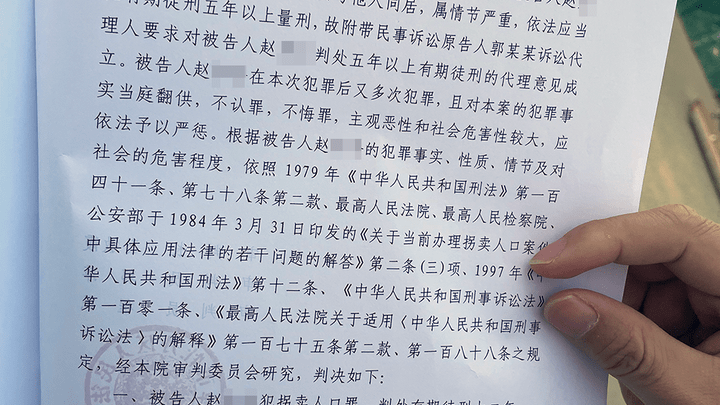 有期徒刑五年以上量刑,故附带民事诉讼原告人郭某某诉讼代
理人要求对被告人赵 判处五年以上有期徒刑的代理意见成
立。被告人赵 在本次犯罪后又多次犯罪,且对本案的犯罪事
实当庭翻供,不认罪,不悔罪,主观恶性和社会危害性较大,应
依法予以严惩。根据被告人赵 的犯罪事实、性质、情节及对
社会的危害程度,依照1979年《中华人民共和国刑法》第一百
四十一条、第七十八条第二款、最高人民法院、最高人民检察院、
公安部于1984年3月31日印发的《关于当前办理拐卖人口案件
中具体应用法律的若干问题的解答》第二条(三)项、1997年《中
华人民共和国刑法》第十二条、《中华人民共和国刑事诉讼法》
第一百零一条、《最高人民法院关于适用〈中华人民共和国刑事
诉讼法〉的解释》第一百七十五条第二款、第一百八十八条之规
定,经本院审判委员会研究,判决如下:
一、被告人赵 犯拐卖人口罪,判处有期徒刑十二年